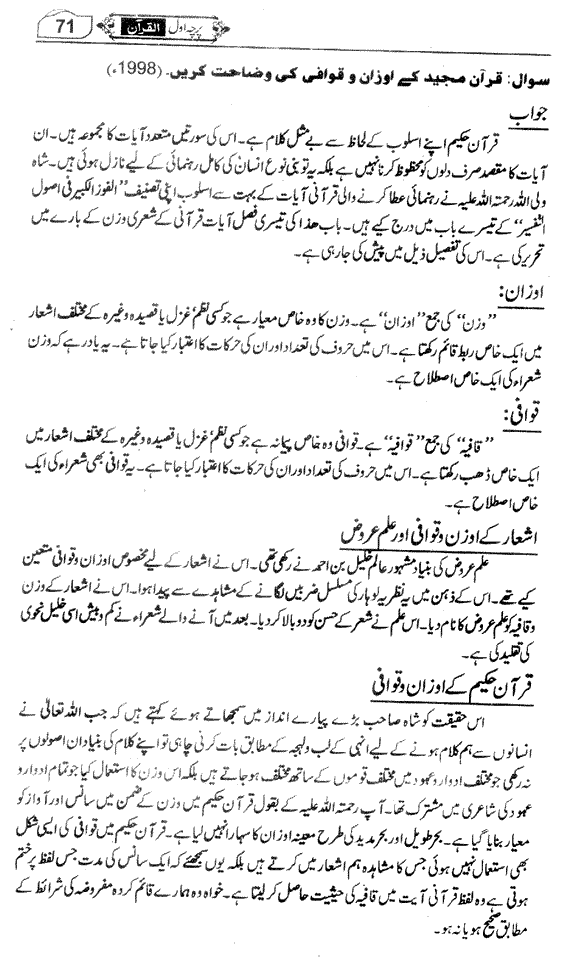 پرچہ اول القرآن 71
سوال: قرآن مجید کے اوزان و قوافی کی وضاحت کریں۔ (1998ء)
جواب
قرآن حکیم اپنے اسلوب کے لحاظ سے بے مثل کلام ہے۔ اس کی سورتیں متعدد آیات کا مجموعہ ہیں۔ ان
آیات کا مقصد صرف دلوں کو محظوظ کرنا نہیں ہے بلکہ یہ تو بنی نوع انسان کی کامل رہنمائی کے لیے نازل ہوئی ہیں۔ شاہ
ولی اللہ رحمتہ اللہ علیہ نے رہنمائی عطا کرنے والی قرآنی آیات کے بہت سے اسلوب اپنی تصنیف ”الفوز الکبیر فی اصول
التفسیر“ کے تیسرے باب میں درج کیے ہیں۔ باب ھذا کی تیسری فصل آیات قرآنی کے شعری وزن کے بارے میں
تحریر کی ہے۔ اس کی تفصیل ذیل میں پیش کی جا رہی ہے۔
اوزان:
”وزن“ کی جمع ”اوزان“ ہے۔ وزن کا وہ خاص معیار ہے جو کسی نظم‘ غزل یا قصیدہ وغیرہ کے مختلف اشعار
میں ایک خاص ربط قائم رکھتا ہے۔ اس میں حروف کی تعداد اور ان کی حرکات کا اعتبار کیا جاتا ہے۔ یہ یاد رہے کہ وزن
شعراء کی ایک خاص اصطلاح ہے۔
قوافی:
”قافیہ“ کی جمع ”قوافیہ“ ہے۔ قوافی وہ خاص پیمانہ ہے جو کسی نظم‘ غزل یا قصیدہ وغیرہ کے مختلف اشعار میں
ایک خاص ڈھب رکھتا ہے۔ اس میں حروف کی تعداد اور ان کی حرکات کا اعتبار کیا جاتا ہے۔ یہ قوافی بھی شعراء کی ایک
خاص اصطلاح ہے۔
اشعار کے اوزن و قوافی اور علم عروض
علم عروض کی بنیاد مشہور عالم خلیل بن احمد نے رکھی تھی۔ اس نے اشعار کے لیے مخصوص اوزان و قوافی متعین
کیے تھے۔ اس کے ذہن میں یہ نظریہ لوہار کی مسلسل ضربیں لگانے کے مشاہدے سے پیدا ہوا۔ اس نے اشعار کے وزن
و قافیہ کو علم عروض کا نام دیا۔ اس علم نے شعر کے حسن کو دوبالا کر دیا۔ بعد میں آنے والے شعراء نے کم و بیش اسی خلیل نحوی
کی تقلید کی ہے۔
قرآن حکیم کے اوزان و قوافی
اس حقیقت کو شاہ صاحب بڑے پیارے انداز میں سمجھاتے ہوئے کہتے ہیں کہ جب اللہ تعالیٰ نے
انسانوں سے ہم کلام ہونے کے لیے انہی کے لب و لہجہ کے مطابق بات کرنی چاہی تو اپنے کلام کی بنیاد ان اصولوں پر
نہ رکھی جو مختلف ادوار و عہود میں مختلف قوموں کے ساتھ مختلف ہو جاتے ہیں بلکہ اس وزن کا استعمال کیا جو تمام ادوار و
عہود کی شاعری میں مشترک تھا۔ آپ رحمتہ اللہ علیہ کے بقول قرآن حکیم میں وزن کے ضمن میں سانس اور آواز کو
معیار بنایا گیا ہے۔ بحر طویل اور بحر مدید کی طرح معینہ اوزان کا سہارا نہیں لیا ہے۔ قرآن حکیم میں قوافی کی ایسی شکل
بھی استعمال نہیں ہوئی جس کا مشاہدہ ہم اشعار میں کرتے ہیں بلکہ یوں سمجھئے کہ ایک سانس کی مدت جس لفظ پر ختم
ہوتی ہے وہ لفظ قرآنی آیت میں قافیہ کی حیثیت حاصل کر لیتا ہے۔ خواہ وہ ہمارے قائم کردہ مفروضہ کی شرائط کے
مطابق صحیح ہو یا نہ ہو۔